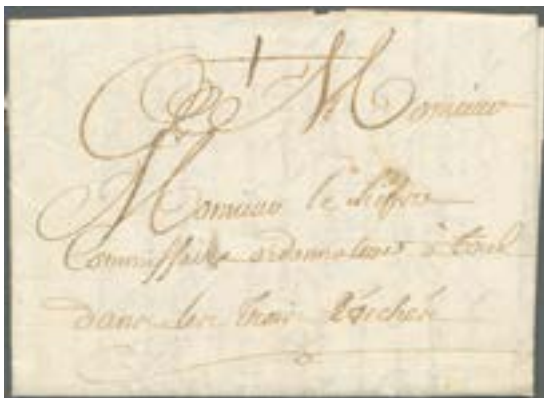 A Monsieur
Monsieur le
Commissaire ordonnateur à toul
dans les trois Evechés